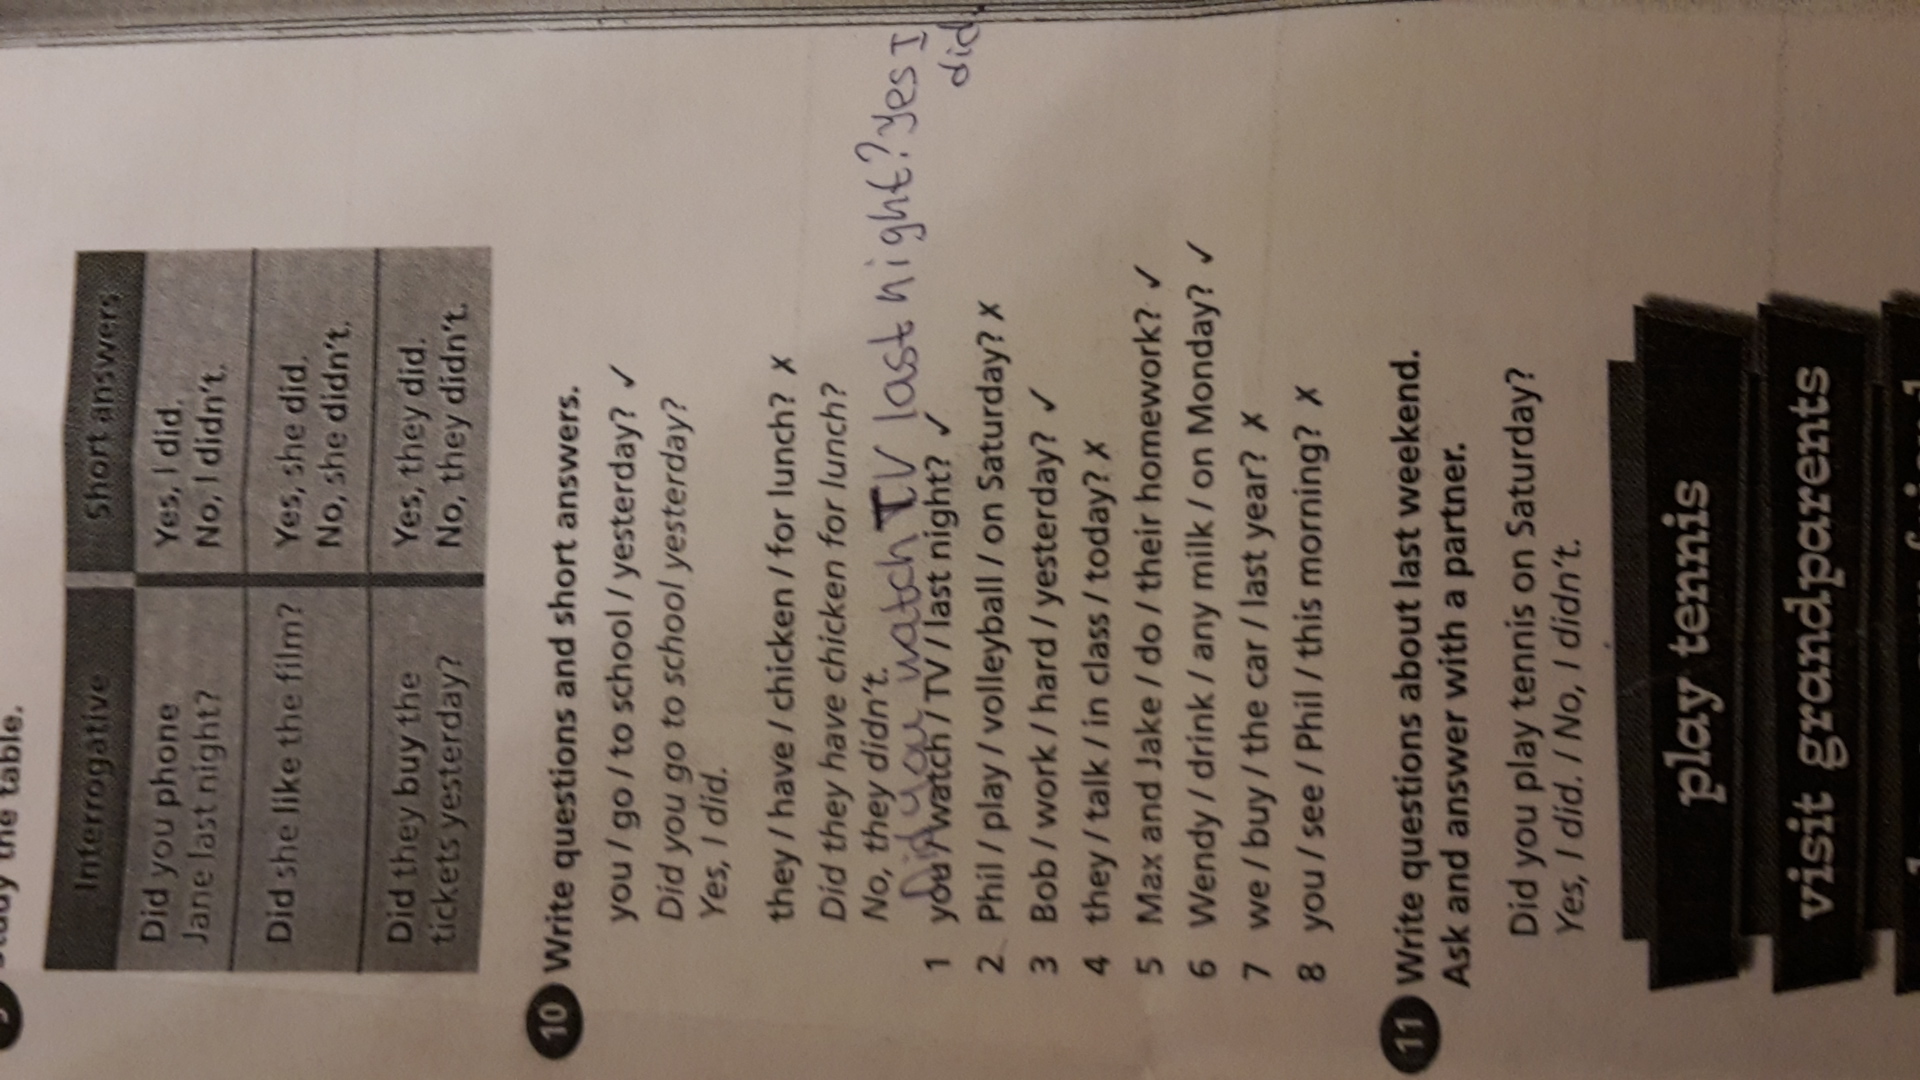 the table.
Interrogative Short answers
Did you phone
Jane last night?
Yes, I did.
No, I didn't.
Did she like the film?
Yes, she did.
No, she didn't.
Did they buy the
tickets yesterday?
Yes, they did.
No, they didn't.
10 Write questions and short answers.
you / go / to school / yesterday? ✓
Did you go to school yesterday?
Yes, I did.
they / have / chicken / for lunch? ✗
Did they have chicken for lunch?
No, they didn't.
Did you watch TV last night? Yes I
did.
1 you / watch / TV / last night? ✓
2 Phil / play / volleyball / on Saturday? ✗
3 Bob / work / hard / yesterday? ✓
4 they / talk / in class / today? ✗
5 Max and Jake / do / their homework? ✓
6 Wendy / drink / any milk / on Monday? ✓
7 we / buy / the car / last year? ✗
8 you / see / Phil / this morning? ✗
11 Write questions about last weekend.
Ask and answer with a partner.
Did you play tennis on Saturday?
Yes, I did. / No, I didn't.
play tennis
visit grandparents